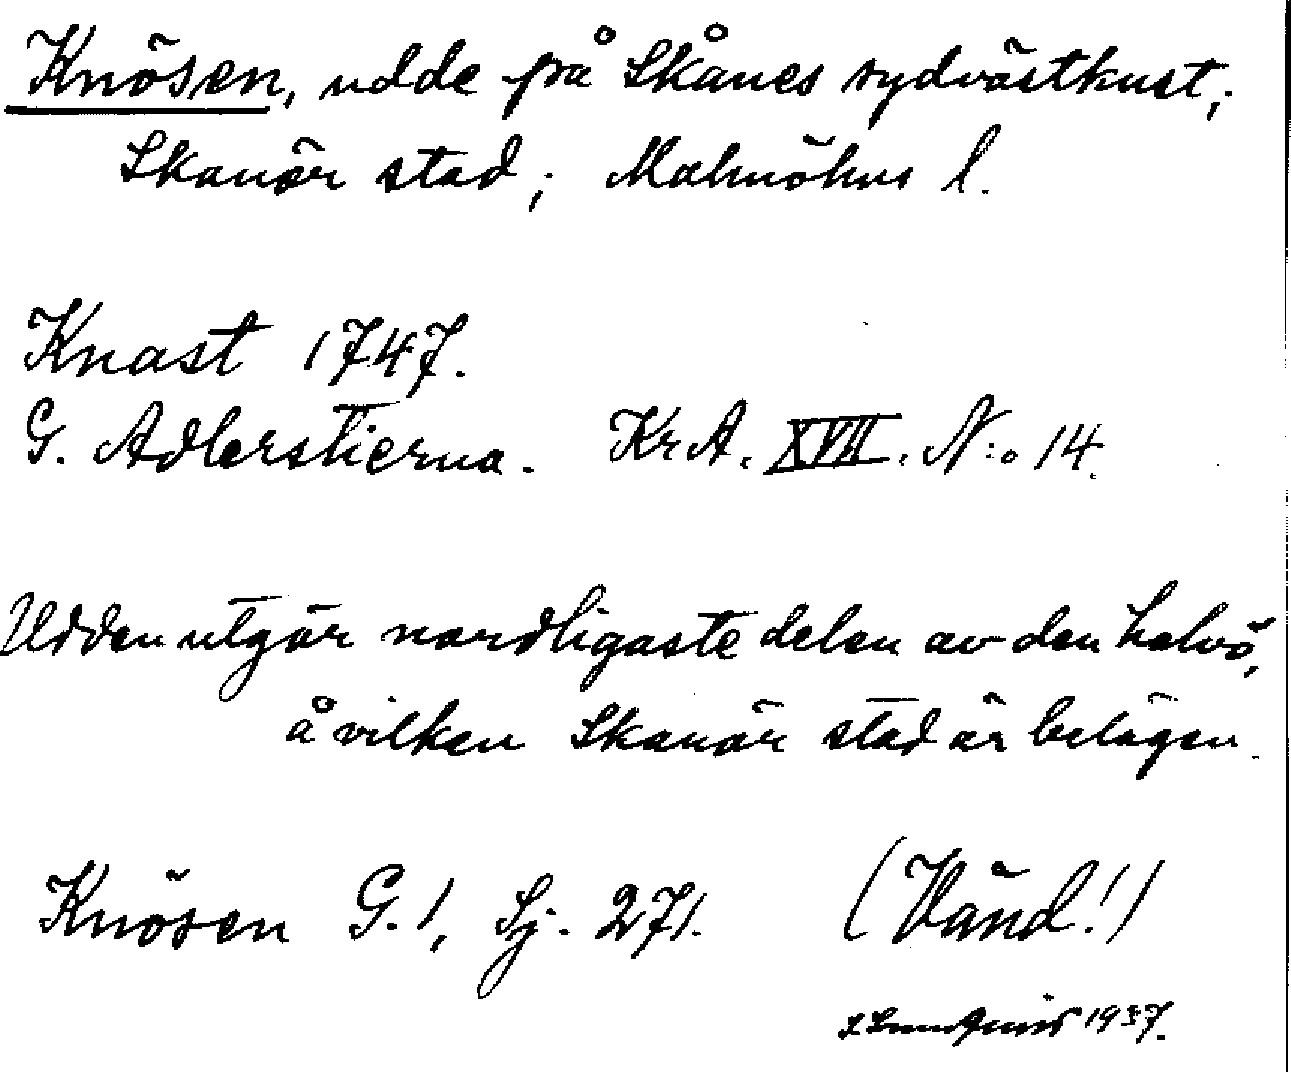 Knösen, udde på Skånes sydvästkust;
Skanör stad; Malmöhus l.
Knast 1747.
G. Adlerstierna. Kr A. XVII. N:o 14.
Udden utgör nordligaste delen av den halvö,
å vilken Skanör stad är belägen.
Knösen G. 1, Sj. 271. (Vänd!)
1937.